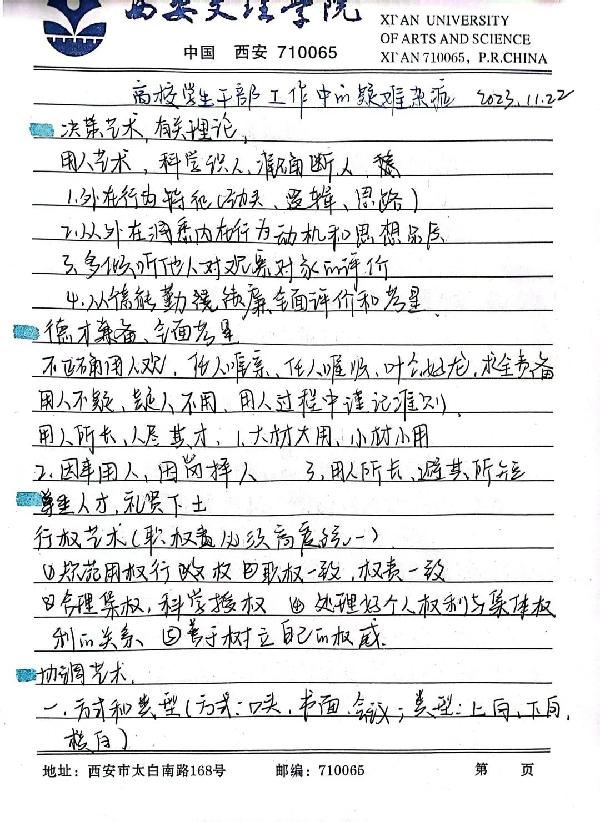 西安文理学院
XI'AN UNIVERSITY
OF ARTS AND SCIENCE
中国 西安 710065
XI'AN 710065, P.R.CHINA
高校学生干部工作中的疑难杂症 2023.11.22
决策艺术,有关理论,
用人艺术,科学识人,准确断人,
1.外在行为特征(劲头、逻辑、思路)
2.从外在洞悉内在行为动机和思想品质
3.多倾听他人对观察对象的评价
4.从德能勤绩廉全面评价和考量.
德才兼备、全面考量
不正确用人观,任人唯亲、任人唯顺、叶公好龙,求全责备
用人不疑,疑人不用,用人过程中谨记准则,
用人所长,人尽其才,1.大材大用,小材小用
2.因事用人,因岗择人 3.用人所长,避其所短
尊重人才,礼贤下士
行权艺术(职权责必须高度统一)
①规范用权行政权 ②职权一致,权责一致
③合理集权,科学授权 ④处理好个人权利与集体权
利的关系、⑤善于树立自己的权威.
协调艺术.
一.方式和类型(方式:口头,书面,会议;类型:上向、下向,
横向)
地址:西安市太白南路168号 邮编:710065 第 页